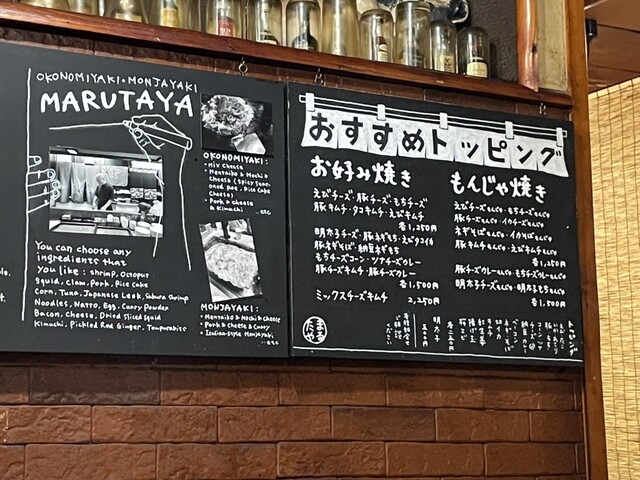 OKONOMIYAKI・MONJAYAKI
MARUTAYA
You can choose any
ingredients that
you like : shrimp, Octopus
squid, clam, Pork, Rice Cake
Corn, Tuna, Japanese Leek, Sakura Shrimp
Noodles, Natto, Egg, Curry Powder
Bacon, Cheese, Dried Sliced Squid
Kimuchi, Pickled Red Ginger, Tempurabits
OKONOMIYAKI :
・Mix Cheese
・Mentaiko & Mochi &
Cheese
Cheese)
・Pork & Cheese
& Kimuchi
...etc
MONJAYAKI :
・Mentaiko & Mochi & Cheese
・Pork & Cheese & Curry
・Italian-Style Monjayaki
...etc
おすすめトッピング
お好み焼き
えびチーズ・豚チーズ・もちチーズ
豚キムチ・タコキムチ・えびキムチ
各1,250円
明太子チーズ・豚ネギもち・豚えびタコイカ
豚ネギそば・納豆ネギもち
もちチーズコーン・ツナチーズカレー
豚チーズキムチ・豚チーズカレー
各1,500円
ミックスチーズキムチ
2,250円
もんじゃ焼き
えびチーズもんじゃ・もちチーズもんじゃ
豚チーズもんじゃ・イカチーズもんじゃ
ネギそばもんじゃ・イカそばもんじゃ
豚キムチもんじゃ・えびキムチもんじゃ
各1,250円
豚チーズカレーもんじゃ・もちチーズカレーもんじゃ
明太子チーズもんじゃ・明太もちもんじゃ
各1,500円
トッピング
各二五〇円
明太子
五百円
まるたや